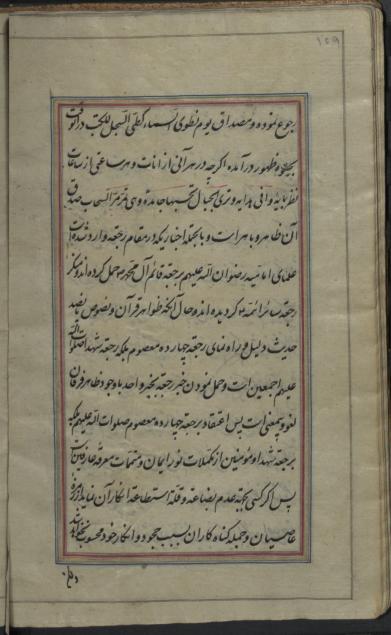 ۱۵۹
رجوع نموده و مصداق یوم نطوی السماء کطی السجل للکتب در آنوقت
ظهور در آمده اگرچه در هر آنی از آنات و هر ساعتی از ساعات
نظر بآیۀ وافی هدایه و تری الجبال تحسبها جامدة وهی تمر مر السحاب صدق
آن ظاهر و باهر است و بالجمله اخباریکه در مقام رجعة وارد شده است
علمای امامیه رضوان الله علیهم برجعة قائم آل محمد حمل کرده اند و منکر
رجعة سایر ائمه گردیده اند و حال آنکه ظواهر قرآن و نصوص
حدیث دلیل و راه نمای رجعة چهارده معصوم بلکه رجعة شهدا صلوات الله
علیهم اجمعین است و حمل نمودن خبر رجعة بخبر واحد باوجود ظاهر قرآن
لغو و بیمعنی است پس اعتقاد برجعة چهارده معصوم صلوات الله علیهم بلکه
برجعة شهدا و مؤمنین از تکملات نور ایمان و متممات معرفة عارفان است
پس اگر کسی بجهة عدم بضاعة و قلة استطاعة انکار آن نماید از زمرۀ
عاصیان و جمله گناه کاران بسبب جحود و انکار خود محسوب